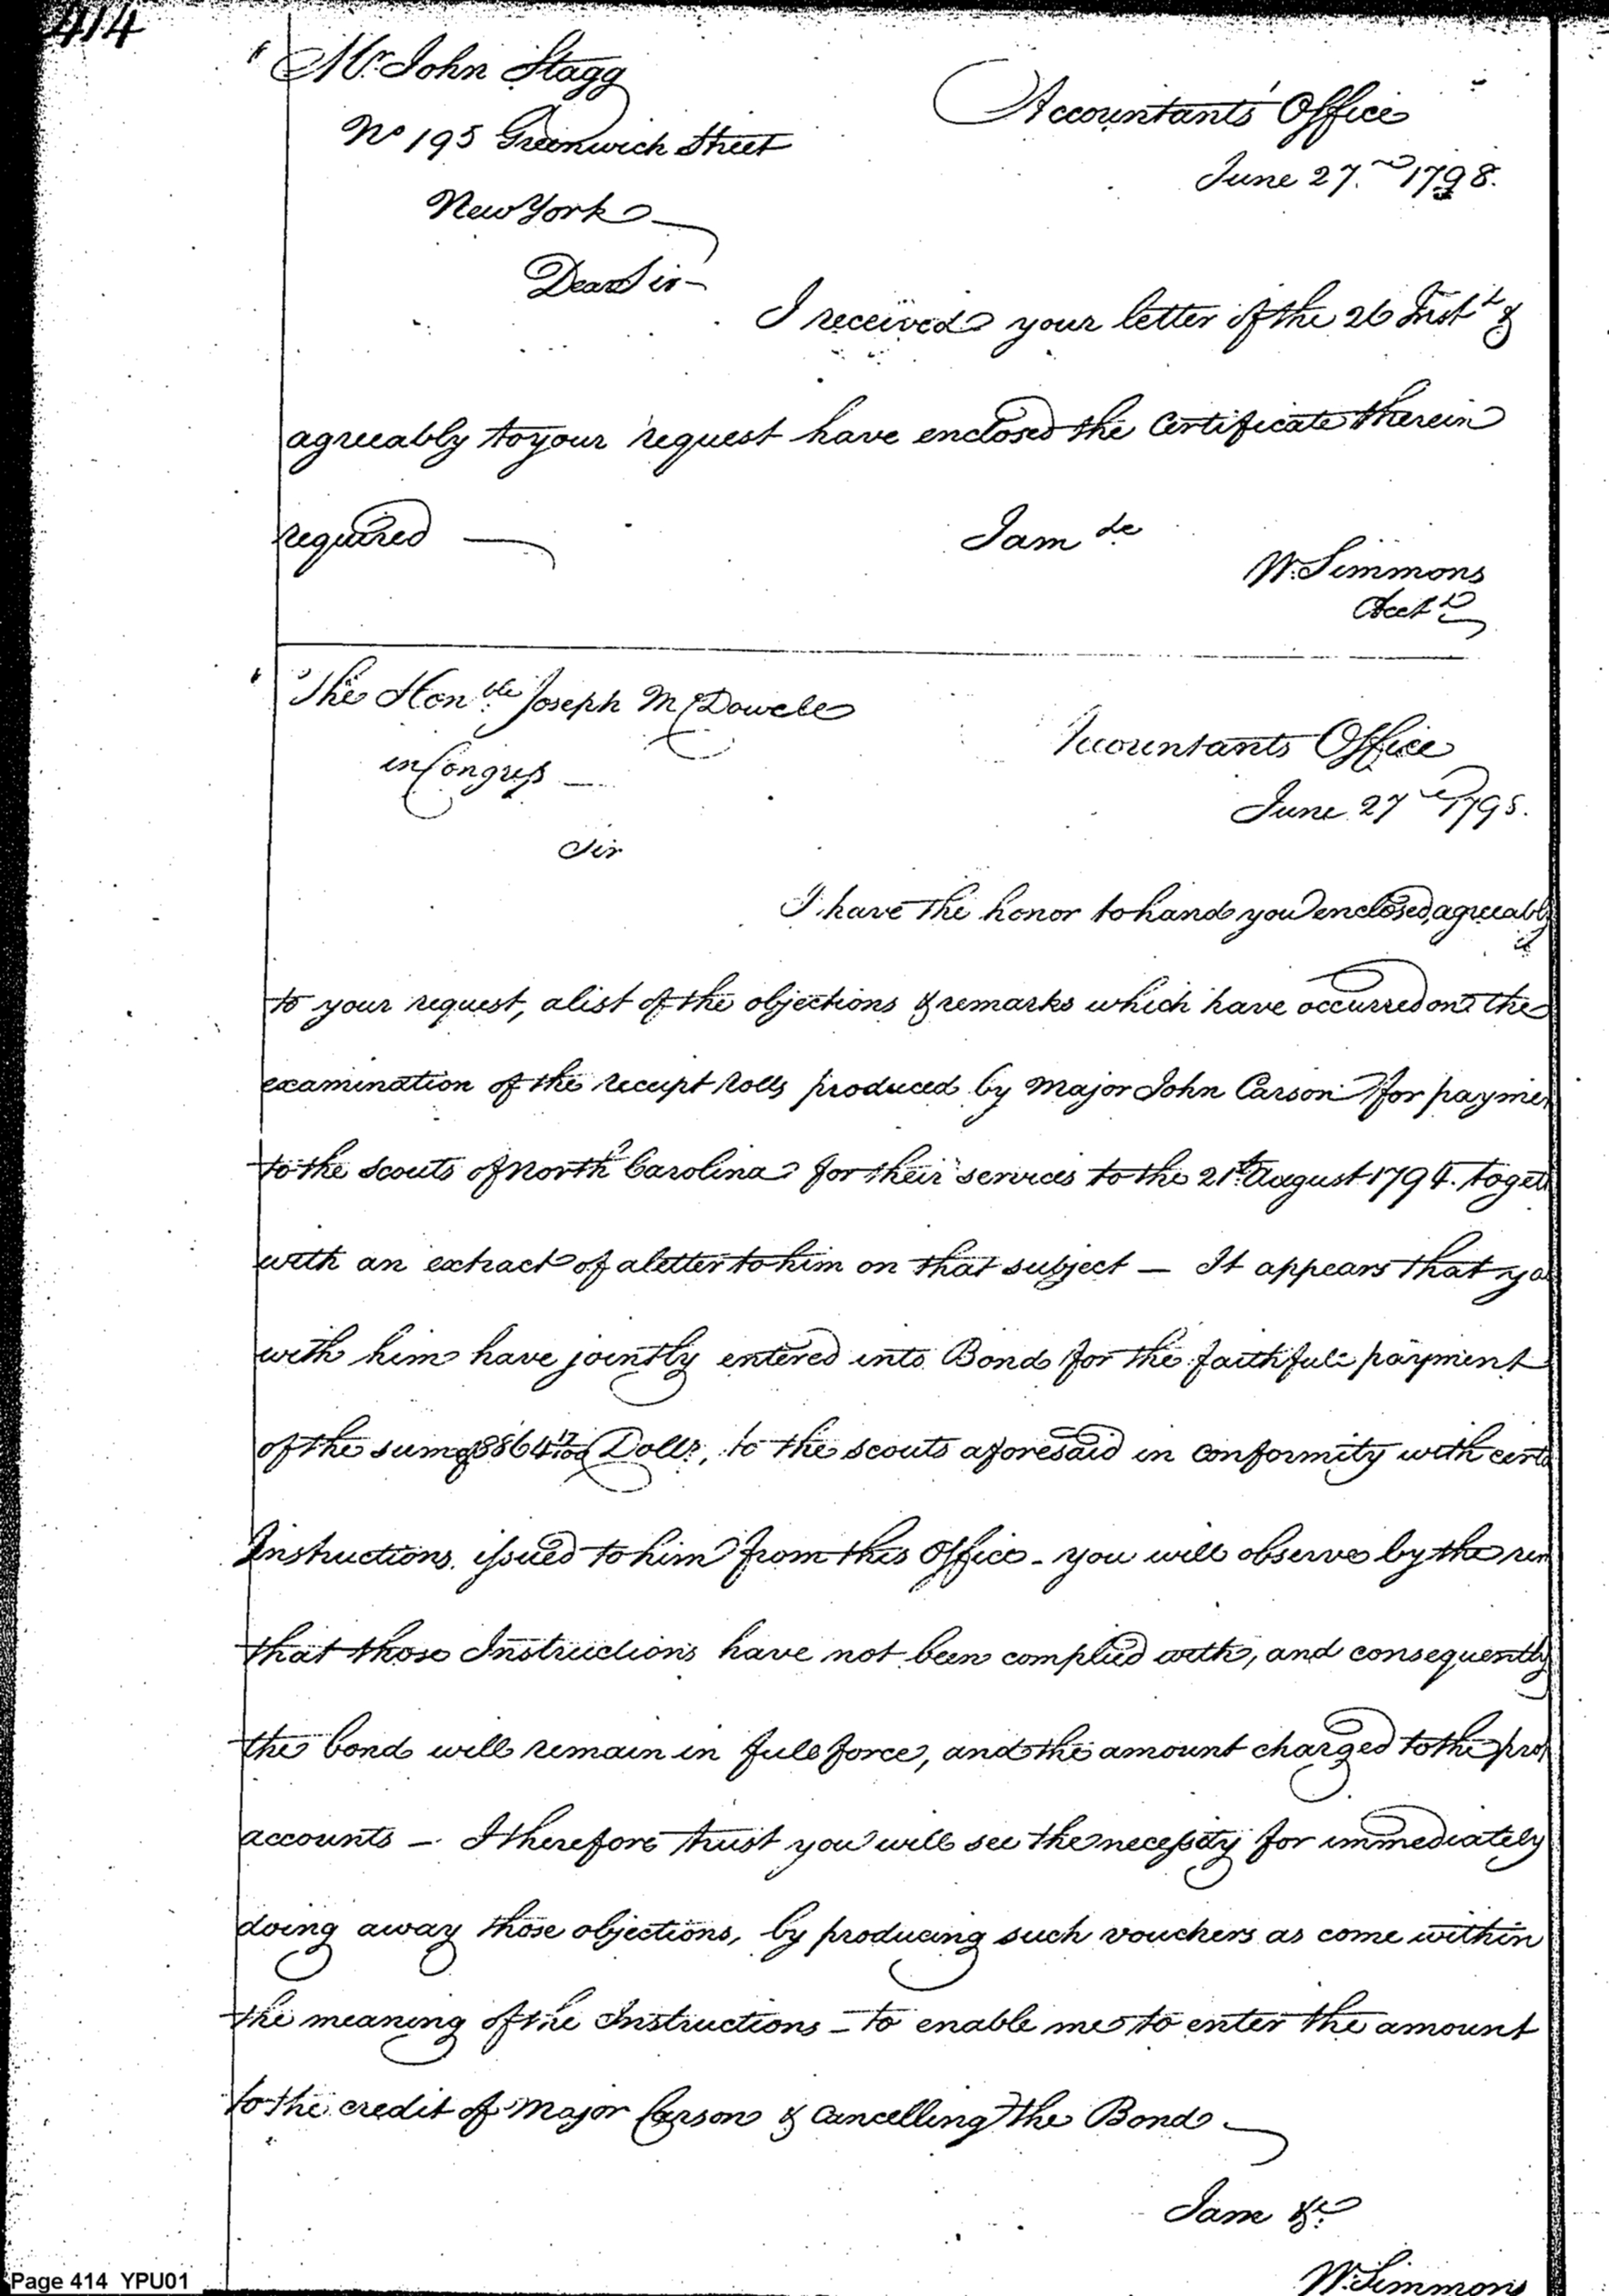 414
Mr. John Stagg
No 195 Greenwich Street
New York
Dear Sir
Accountants Office
June 27. 1798.
I received your letter of the 26 Inst &
agreeably to your request have enclosed the Certificate therein
required
I am &c
W. Simmons
Acct
The Honble Joseph McDowele
in Congress
Sir
Accountants Office
June 27 1798.
I have the honor to hand you enclosed, agreeably
to your request, a list of the objections & remarks which have occurred on the
examination of the receipt rolls produced by Major John Carson for paymen
to the Scouts of North Carolina for their services to the 21st August 1794. toget
with an extract of a letter to him on that subject — It appears that yo
with him have jointly entered into Bond for the faithfull payment
of the sum of 8864 17/100 Dolls, to the scouts aforesaid in conformity with certa
Instructions issued to him from this Office - you will observe by the rem
that those Instructions have not been complied with, and consequently
the bond will remain in full force, and the amount charged to the prop
accounts — I therefore trust you will see the necessity for immediately
doing away those objections, by producing such vouchers as come within
the meaning of the Instructions — to enable me to enter the amount
to the credit of Major Carson & Cancelling the Bond
I am &c.
W. Simmons
Page 414 YPU01